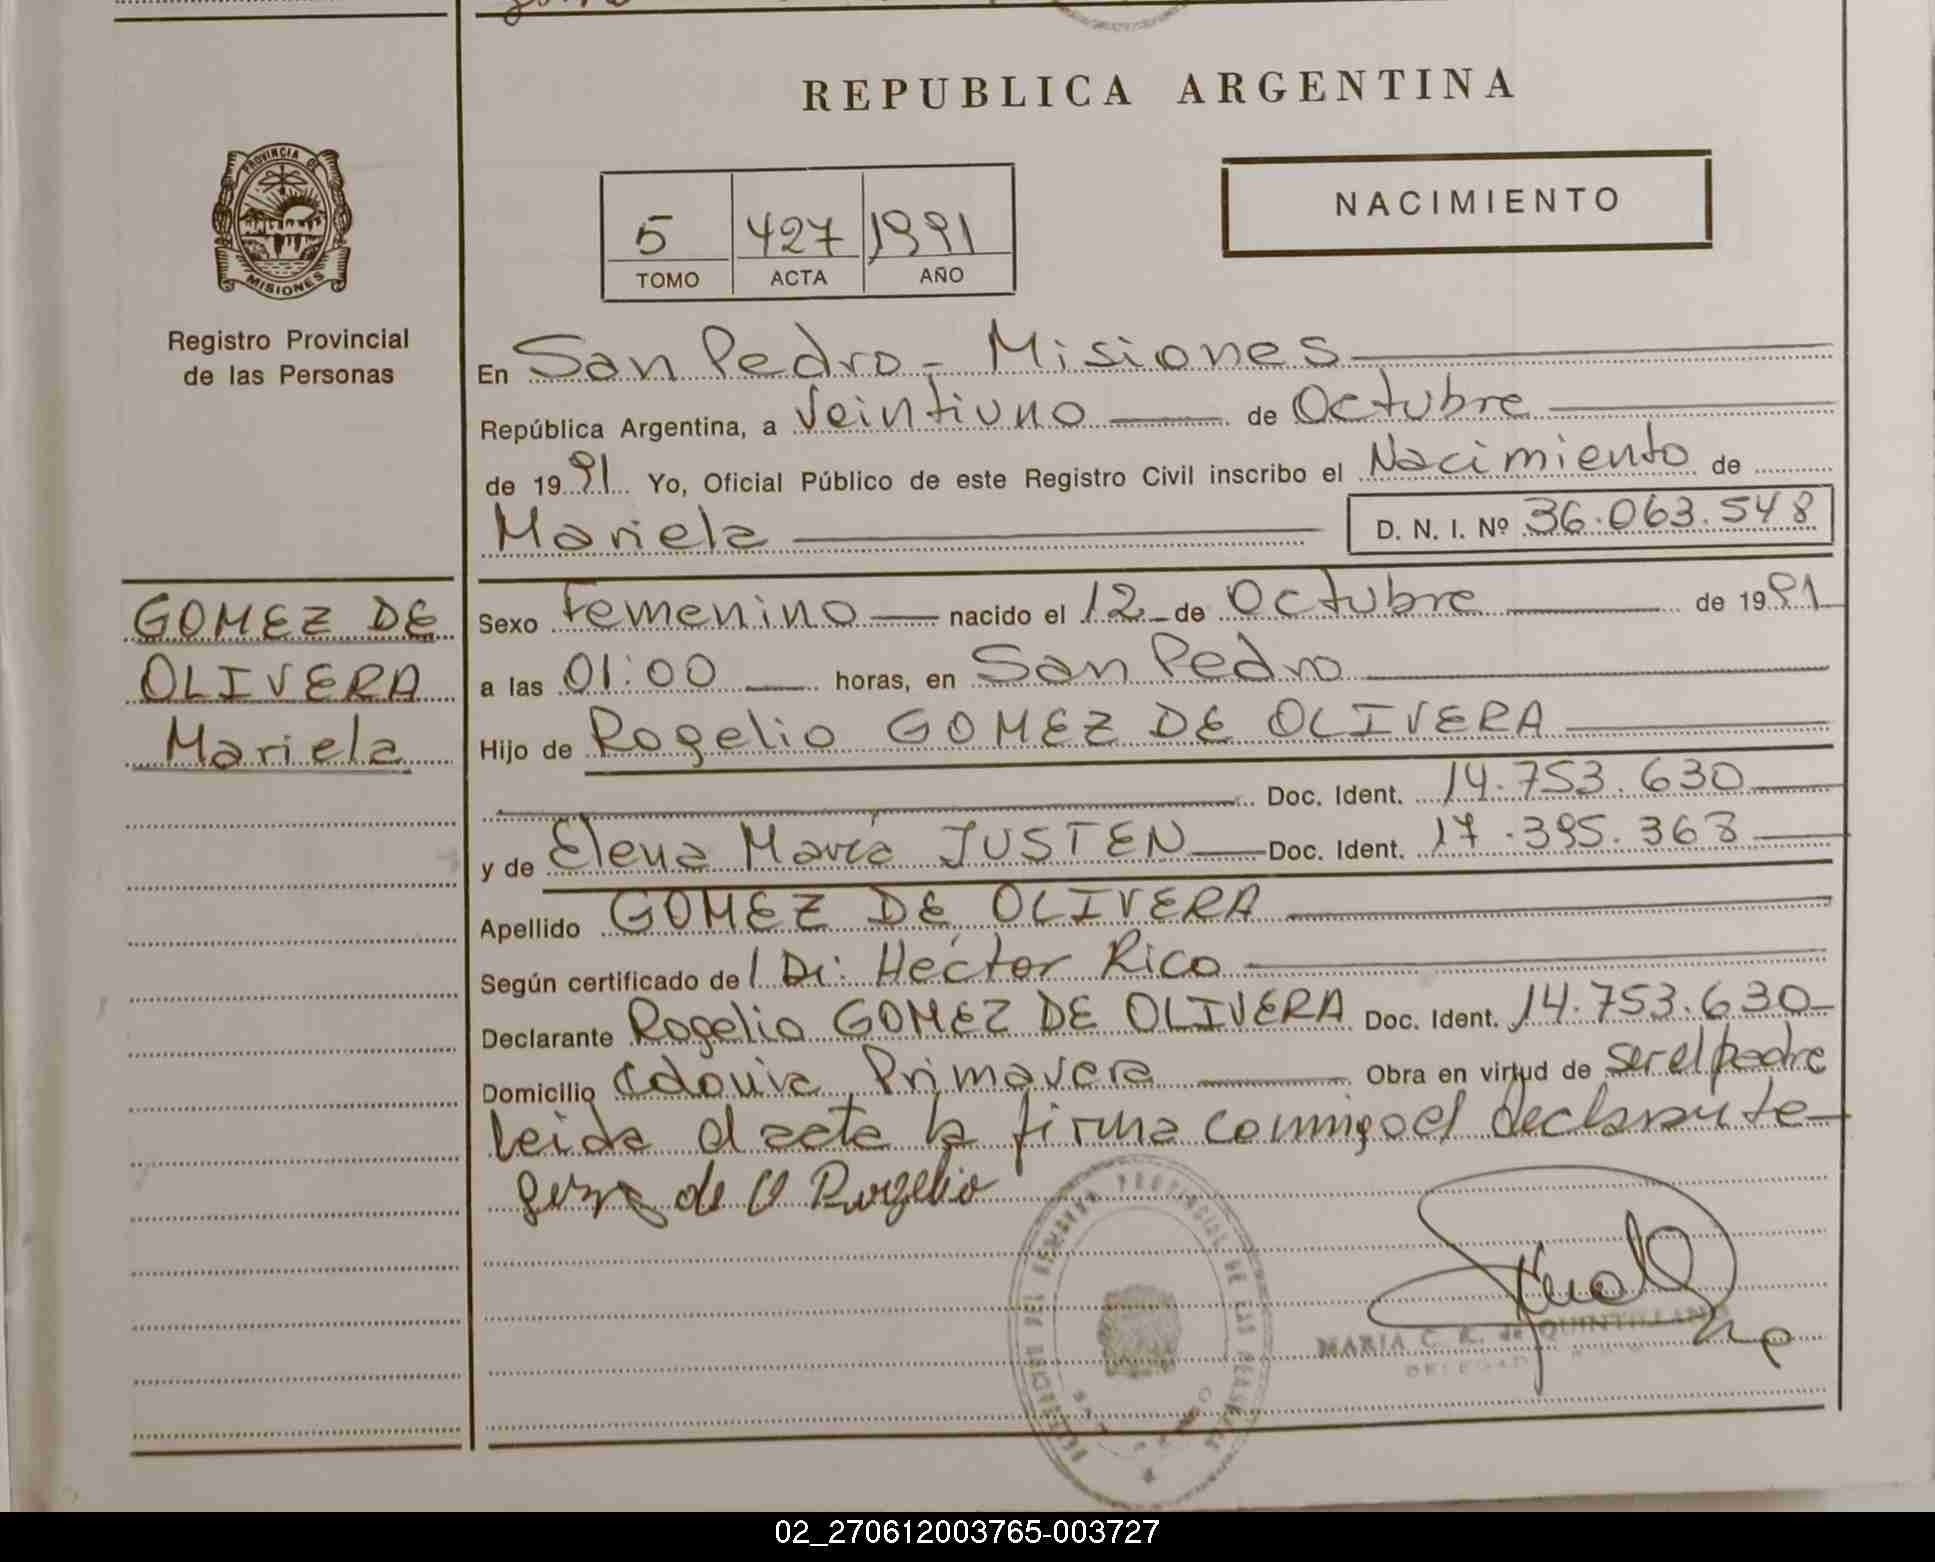 REPUBLICA ARGENTINA
PROVINCIA DE
MISIONES
Registro Provincial
de las Personas
NACIMIENTO
5 427 1991
TOMO ACTA AÑO
En San Pedro - Misiones
República Argentina, a Veintiuno de Octubre
de 1991 Yo, Oficial Público de este Registro Civil inscribo el Nacimiento de
Mariela D. N. I. Nº 36.063.548
GOMEZ DE
OLIVERA
Mariela
Sexo Femenino nacido el 12 de Octubre de 1991
a las 01:00 horas, en San Pedro
Hijo de Rogelio GOMEZ DE OLIVERA
Doc. Ident. 14.753.630
y de Elena María JUSTEN Doc. Ident. 17.395.368
Apellido GOMEZ DE OLIVERA
Según certificado del Dr: Héctor Rico
Declarante Rogelio GOMEZ DE OLIVERA Doc. Ident. 14.753.630
Domicilio Colonia Primavera Obra en virtud de ser el padre
Leida el acta la firma conmigo el declarante
de O Rogelio
REGISTRO PROVINCIAL DE LAS PERSONAS
MARIA C. R. de QUINTILLANO
02_270612003765-003727